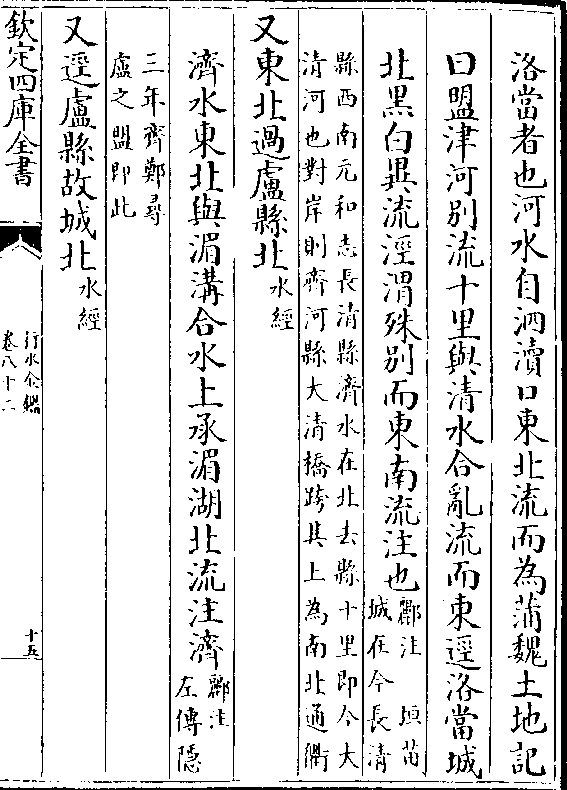 洛當者也河水自泗瀆口東北流而為蒲魏土地記
曰盟津河别流十里與清水合亂流而東逕洛當城
北黑白異流涇渭殊别而東南流注也酈注　垣苗
城在今長清
縣西南元和志長清縣濟水在北去縣十里即今大
清河也對岸則齊河縣大清橋跨其上為南北通衢
又東北過盧縣北水經
濟水東北與湄溝合水上承湄湖北流注濟酈注
左傳隱
三年齊鄭尋
盧之盟即此
又逕盧縣故城北水經
欽定四庫全書
行水金鑑
卷八十二
十五